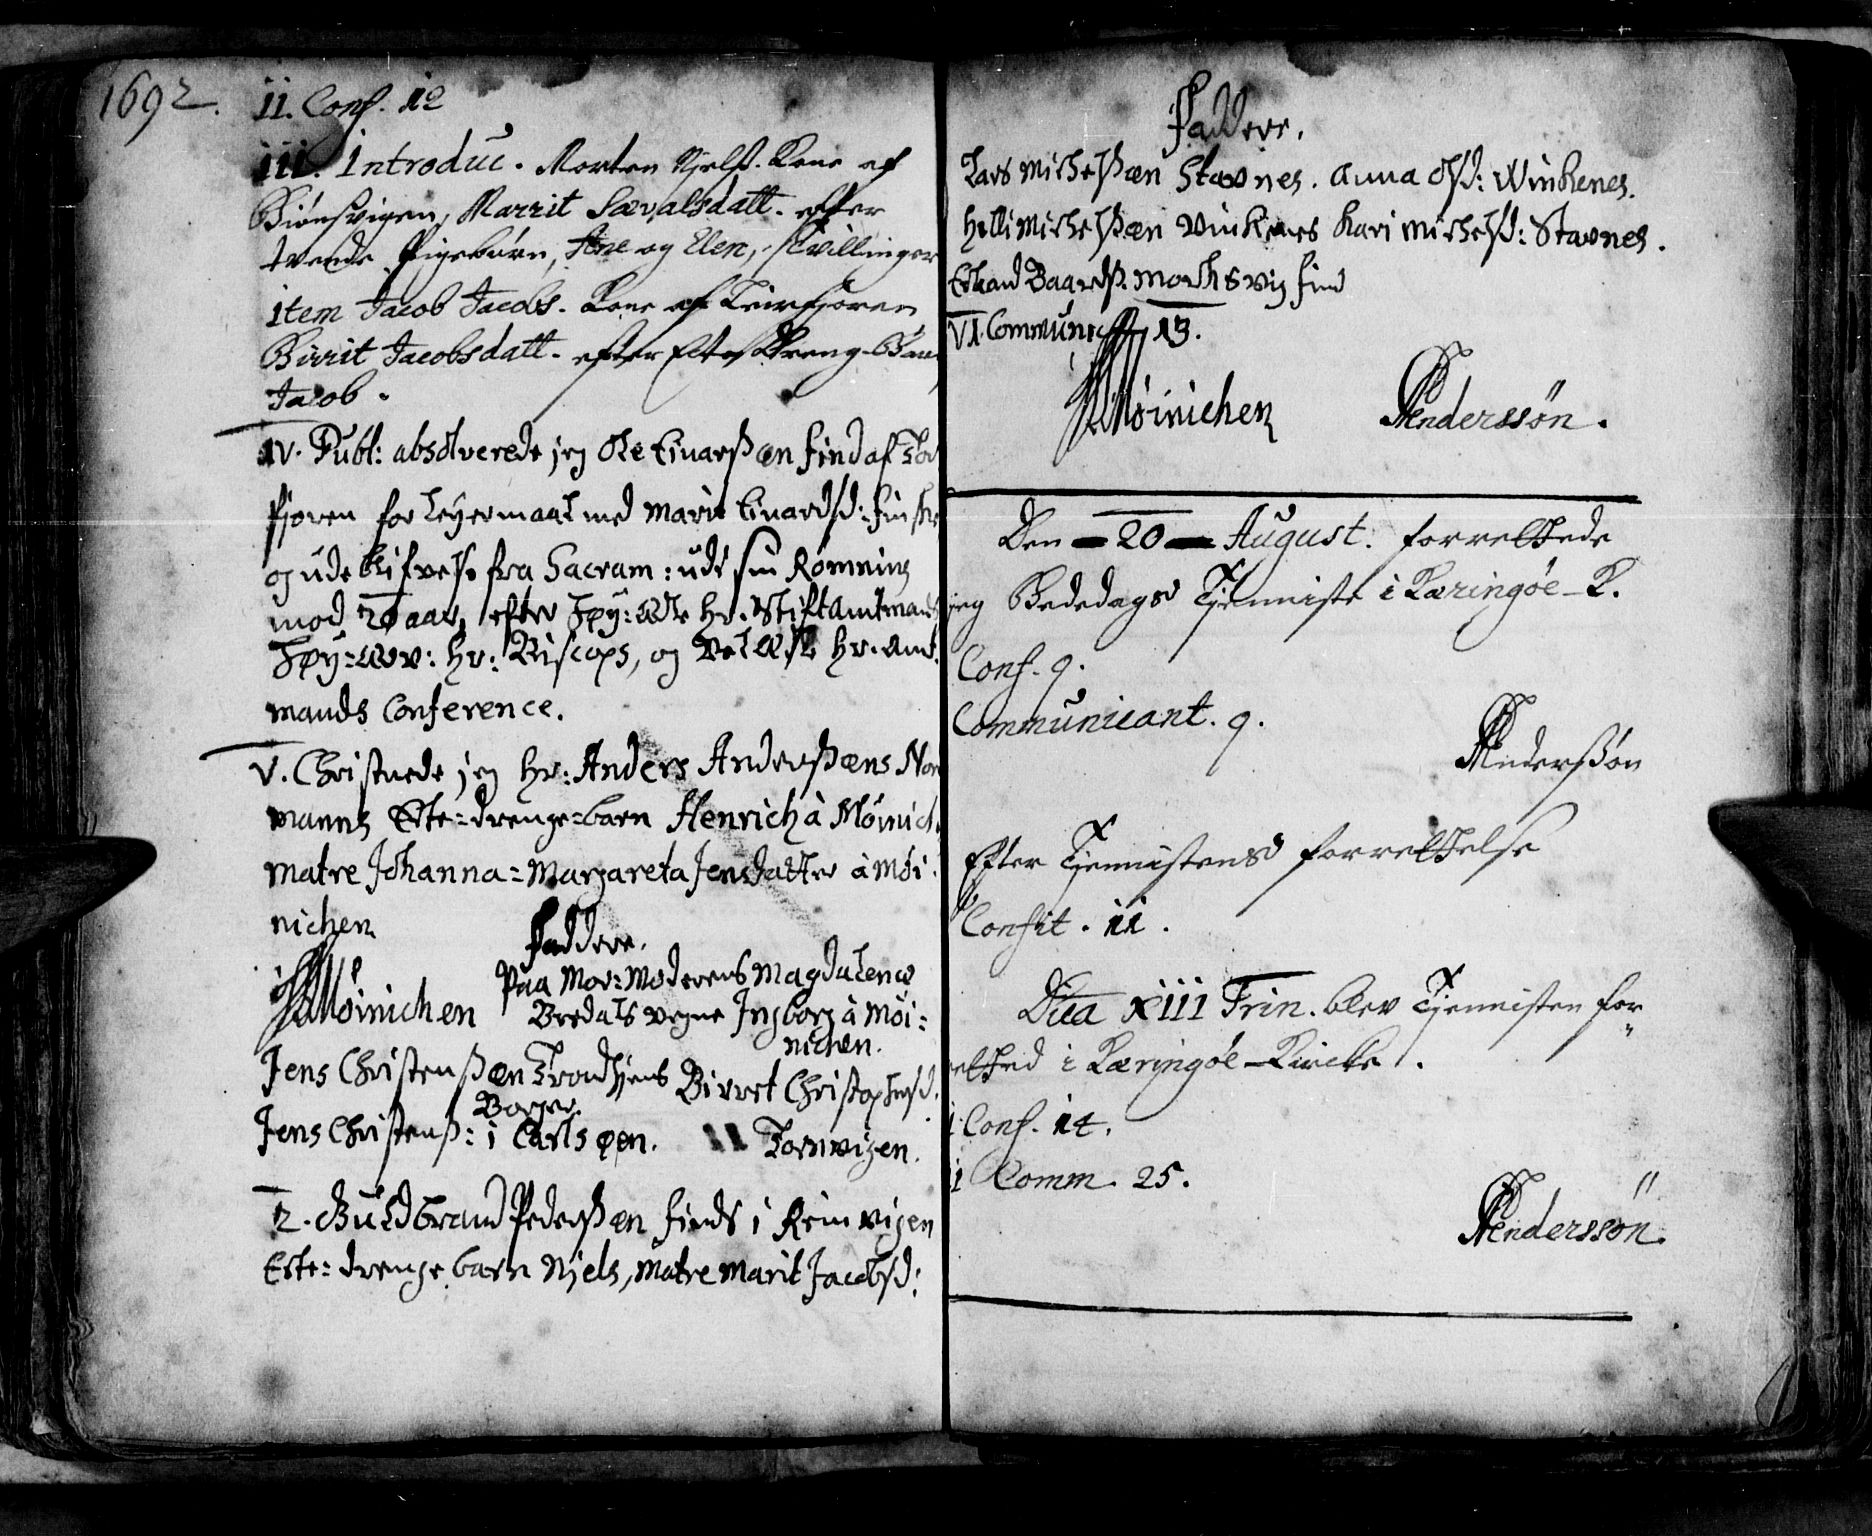 1692.
II. Conf. 12
III. Introduc. Morten Njelss. Kone af
Biönsvigen, Marrit Sævalsdatt. efter
tvende Pigebörn, Ane og Elen, Tvillinger
item Jacob Jacobs. Kone af Leirfjoren
Birrit Jacobsdatt. efter Ecte Dreng-Barn
Jacob.
IV. Publ: absolverede jeg Ole Einarssæn find af
fjoren for Leyermaal med Marit Einardsd:
og udeblifvelse fra Sacram: udi sin Rømning
mod 20 aar, efter Høy: Edle Hr. Stiftamtmands
Høy=ærv: Hr: Biscops, og Vel Edle Hr. Amt-
mands Conference.
V. Christnede jeg Hr: Anders Anderssæns Nor
manns Ecte=drenge=barn Henrich à Möinich
matre Johanna=Margareta Jensdatter à Möi=
nichen
Faddere.
Paa Mor:Moderens Magdalenæ
Möinichen Bredals vegne Ingborg à Möi=
nichen.
Jens Christenssæn Trondhjems Birret Christophersd.
Borger.
Jens Christenss: i Carlsøen. Tornvigen.
2. Guldbrand Pederssæn finds i Reinvigen
Ecte=drenge barn Njels, matre Marit Jacobsd:
Faddere.
Lars Michelssæn Stavnes. Anna Olsd: Winkenes.
Helli Michelssæn Vinkenes Kari Michelsd: Stavnes.
Erland Baardss. Morthsvig find
VI. Communic 13.
Möinichen Anderssön.
Den 20 August. forrettede
jeg Bededags Tjenniste i Kæringöe-K.
Conf. 9.
Communicant. 9.
Anderssön
Efter Tjennistens forrettelse
Confit. 11.
Dica XIII Trin. blev Tjennisten for
retted i Kæringöe-Kircke.
I Conf. 14.
II Comm. 25.
Anderssön.